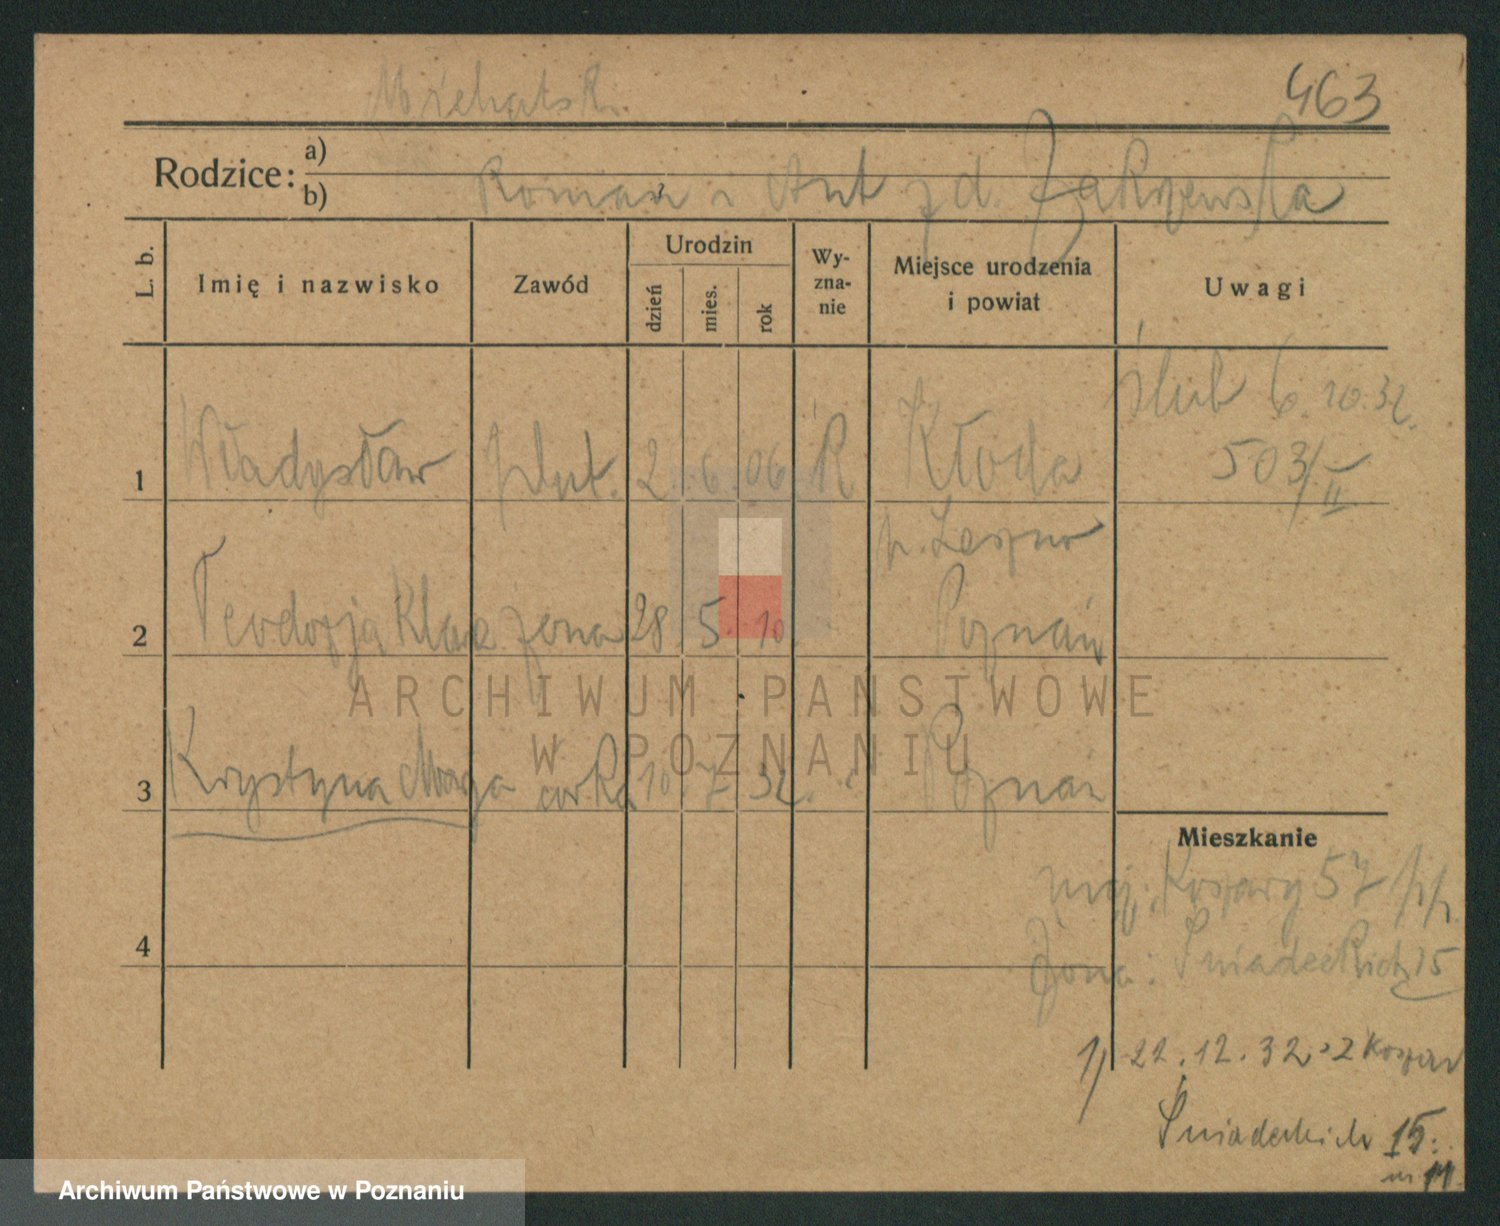 Michalski
463
Rodzice: a)
b) Roman i Ant z d. Zakrzewska
L. b. Imię i nazwisko Zawód Urodzin dzień mies. rok Wy-zna-nie Miejsce urodzenia i powiat Uwagi
ślub 6.10.32.
1 Władysław plut. 2. 6. 06 R Kłoda 503/II
p. Leszno
2 Teodozja Klara żona 28. 5. 10 Poznań
3 Krystyna Marja córka 10. 7. 32. Poznań
Mieszkanie
mąż: Koszary 57 pp.
4
Żona: Śniadeckich 15
1) 22.12.32 z Koszar
Śniadeckich 15.
m 11.
ARCHIWUM PANSTWOWE
W POZNANIU
Archiwum Państwowe w Poznaniu